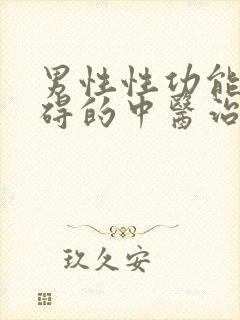 男性性功能
碍的中醫治
玖久安